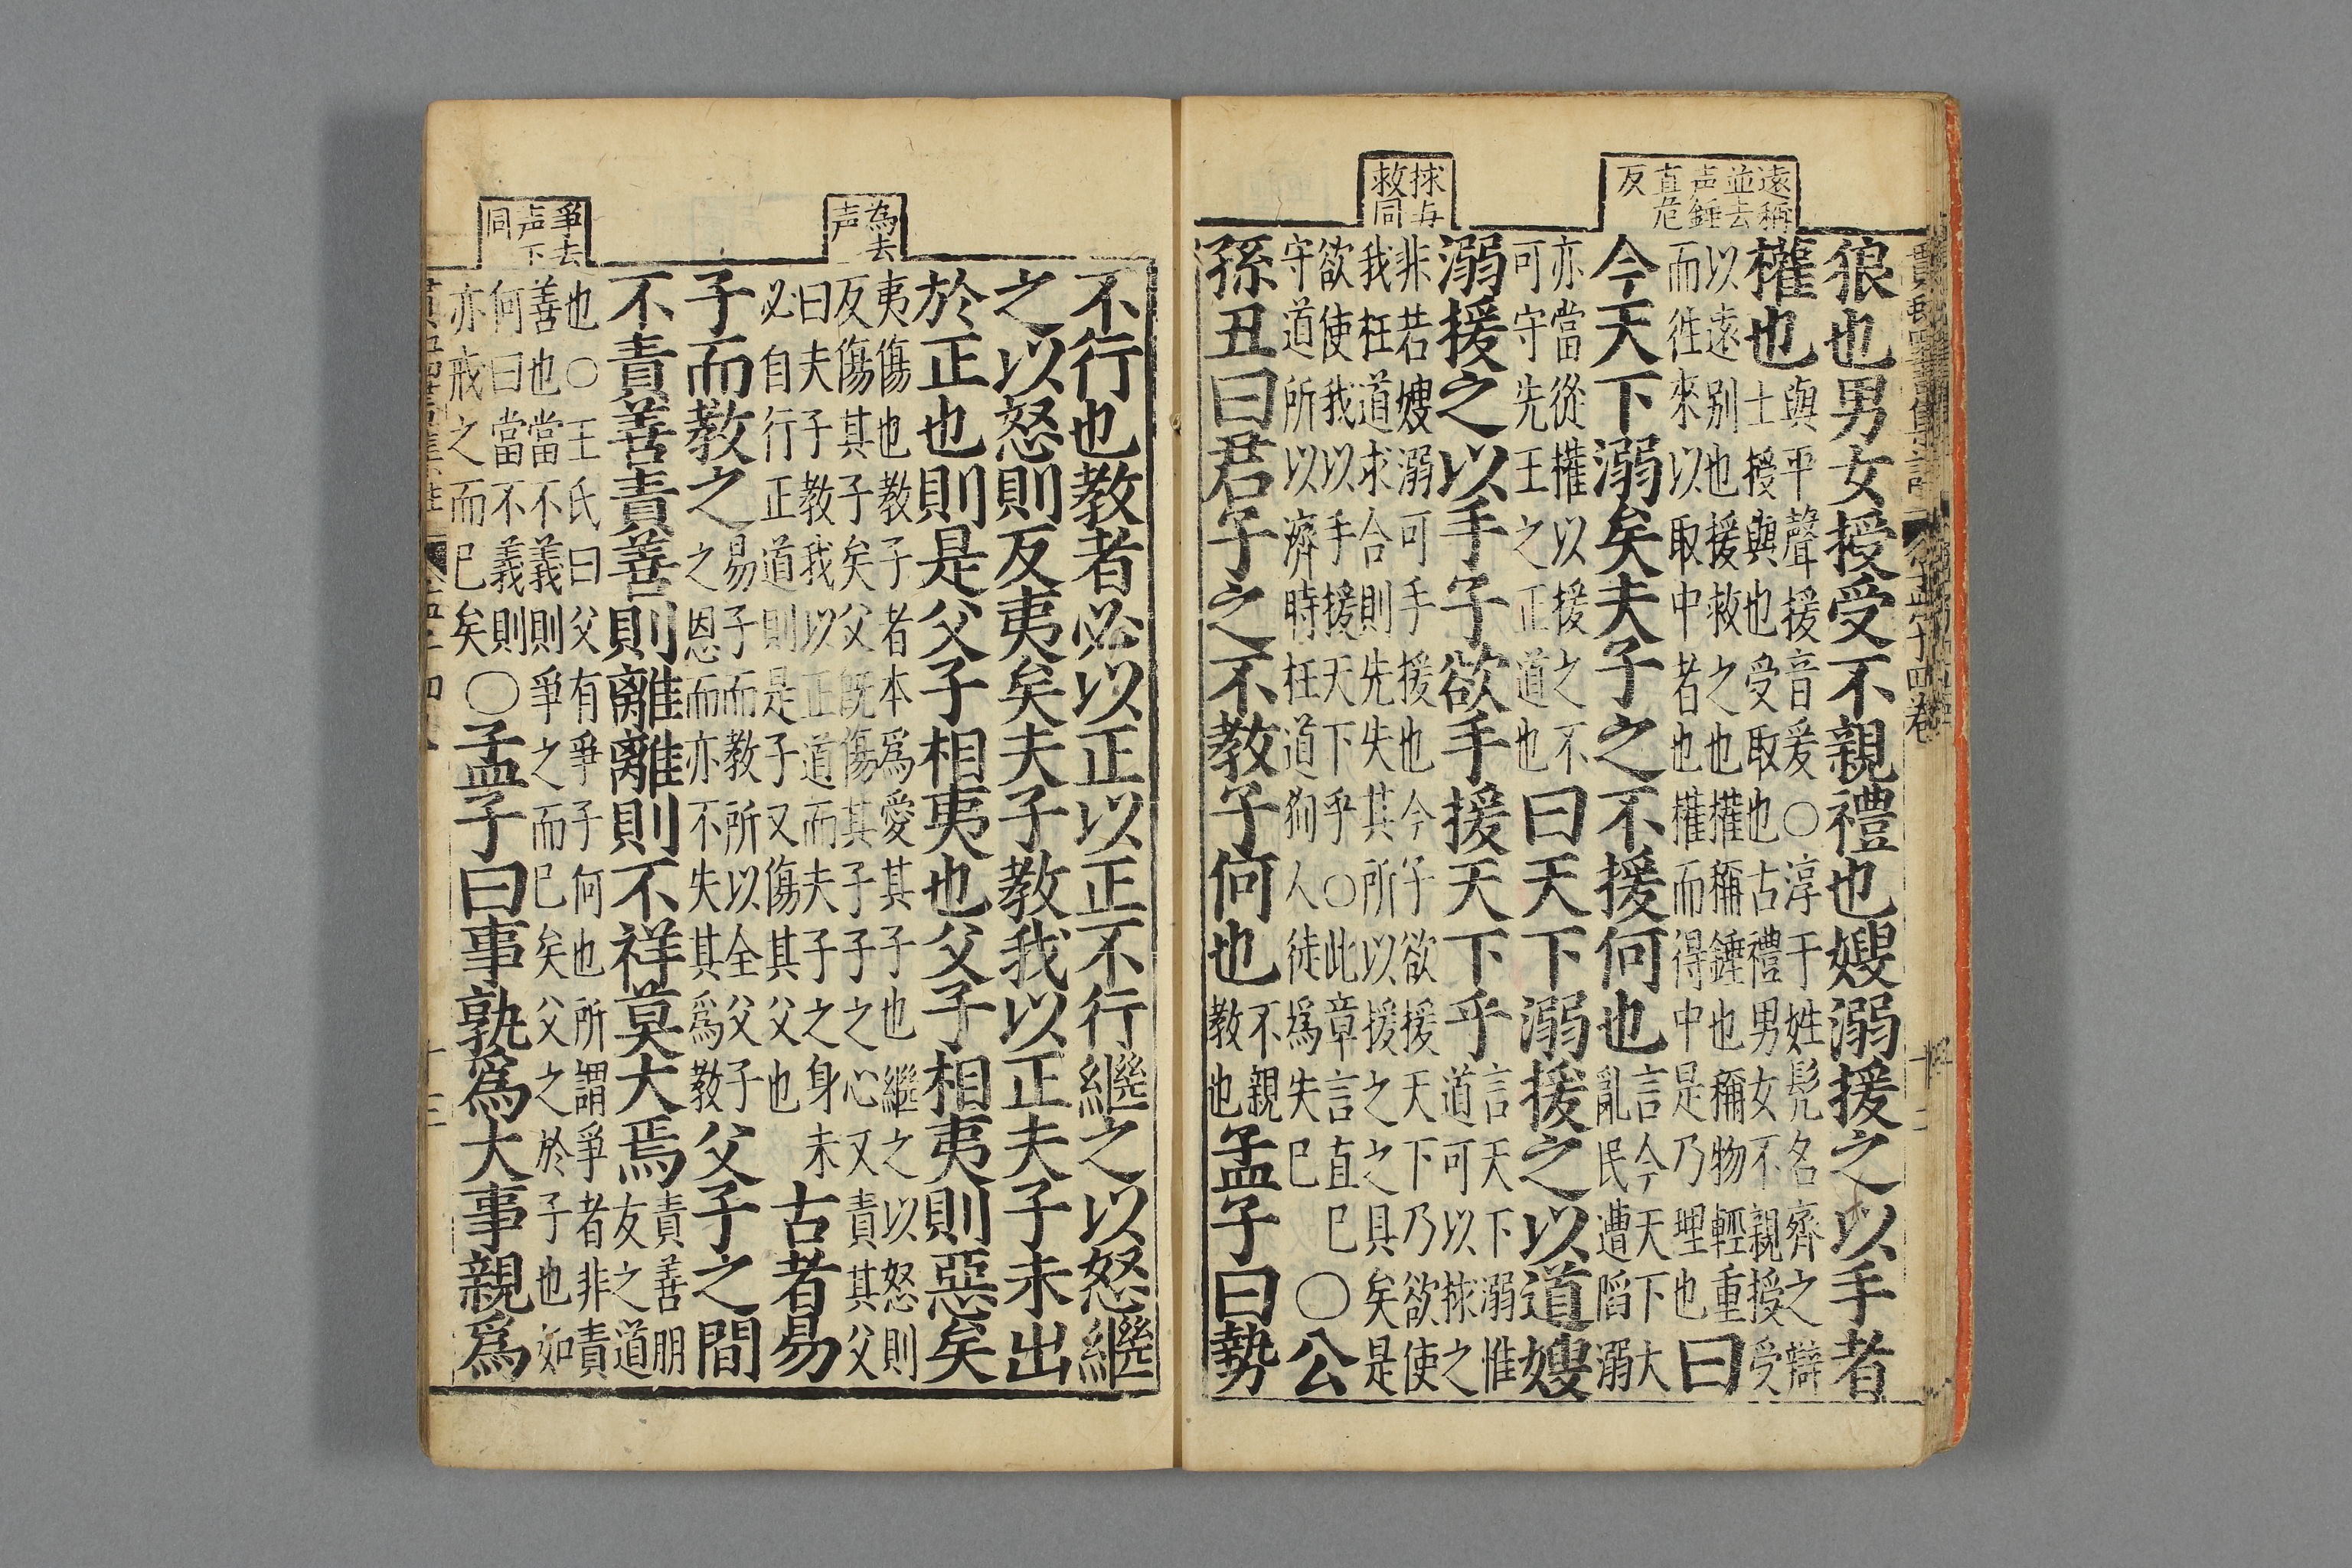 遠稱
並去
声錘
直危
反
捄与
救同
狼也男女授受不親禮也嫂溺援之以手者
權也
與平聲援音爰○淳于姓髠名齊之辯
士授與也受取也古禮男女不親授受
以遠别也援救之也權稱錘也稱物輕重
而徃來以取中者也權而得中是乃理也
曰
今天下溺矣夫子之不援何也
言今天下大
亂民遭陷溺
亦當從權以援之不
可守先王之正道也
曰天下溺援之以道嫂
溺援之以手子欲手援天下乎
言天下溺惟
道可以捄之
非若嫂溺可手援也今子欲援天下乃欲使
我枉道求合則先失其所以援之之具矣是
欲使我以手援天下乎○此章言直已
守道所以濟時枉道狥人徒爲失已
○公
孫丑曰君子之不教子何也
不親
教也
孟子曰勢
為去
声
爭去
声下
同
不行也教者必以正以正不行繼之以怒繼
之以怒則反夷矣夫子教我以正夫子未出
於正也則是父子相夷也父子相夷則惡矣
夷傷也教子者本爲愛其子也繼之以怒則
反傷其子矣父旣傷其子子之心又責其父
曰夫子教我以正道而夫子之身未
必自行正道則是子又傷其父也
古者易
子而教之
易子而教所以全父子
之恩而亦不失其爲教
父子之間
不責善責善則離離則不祥莫大焉
責善朋
友之道
也○王氏曰父有爭子何也所謂爭者非責
善也當不義則爭之而已矣父之於子也如
何曰當不義則
亦戒之而已矣
○孟子曰事孰爲大事親爲